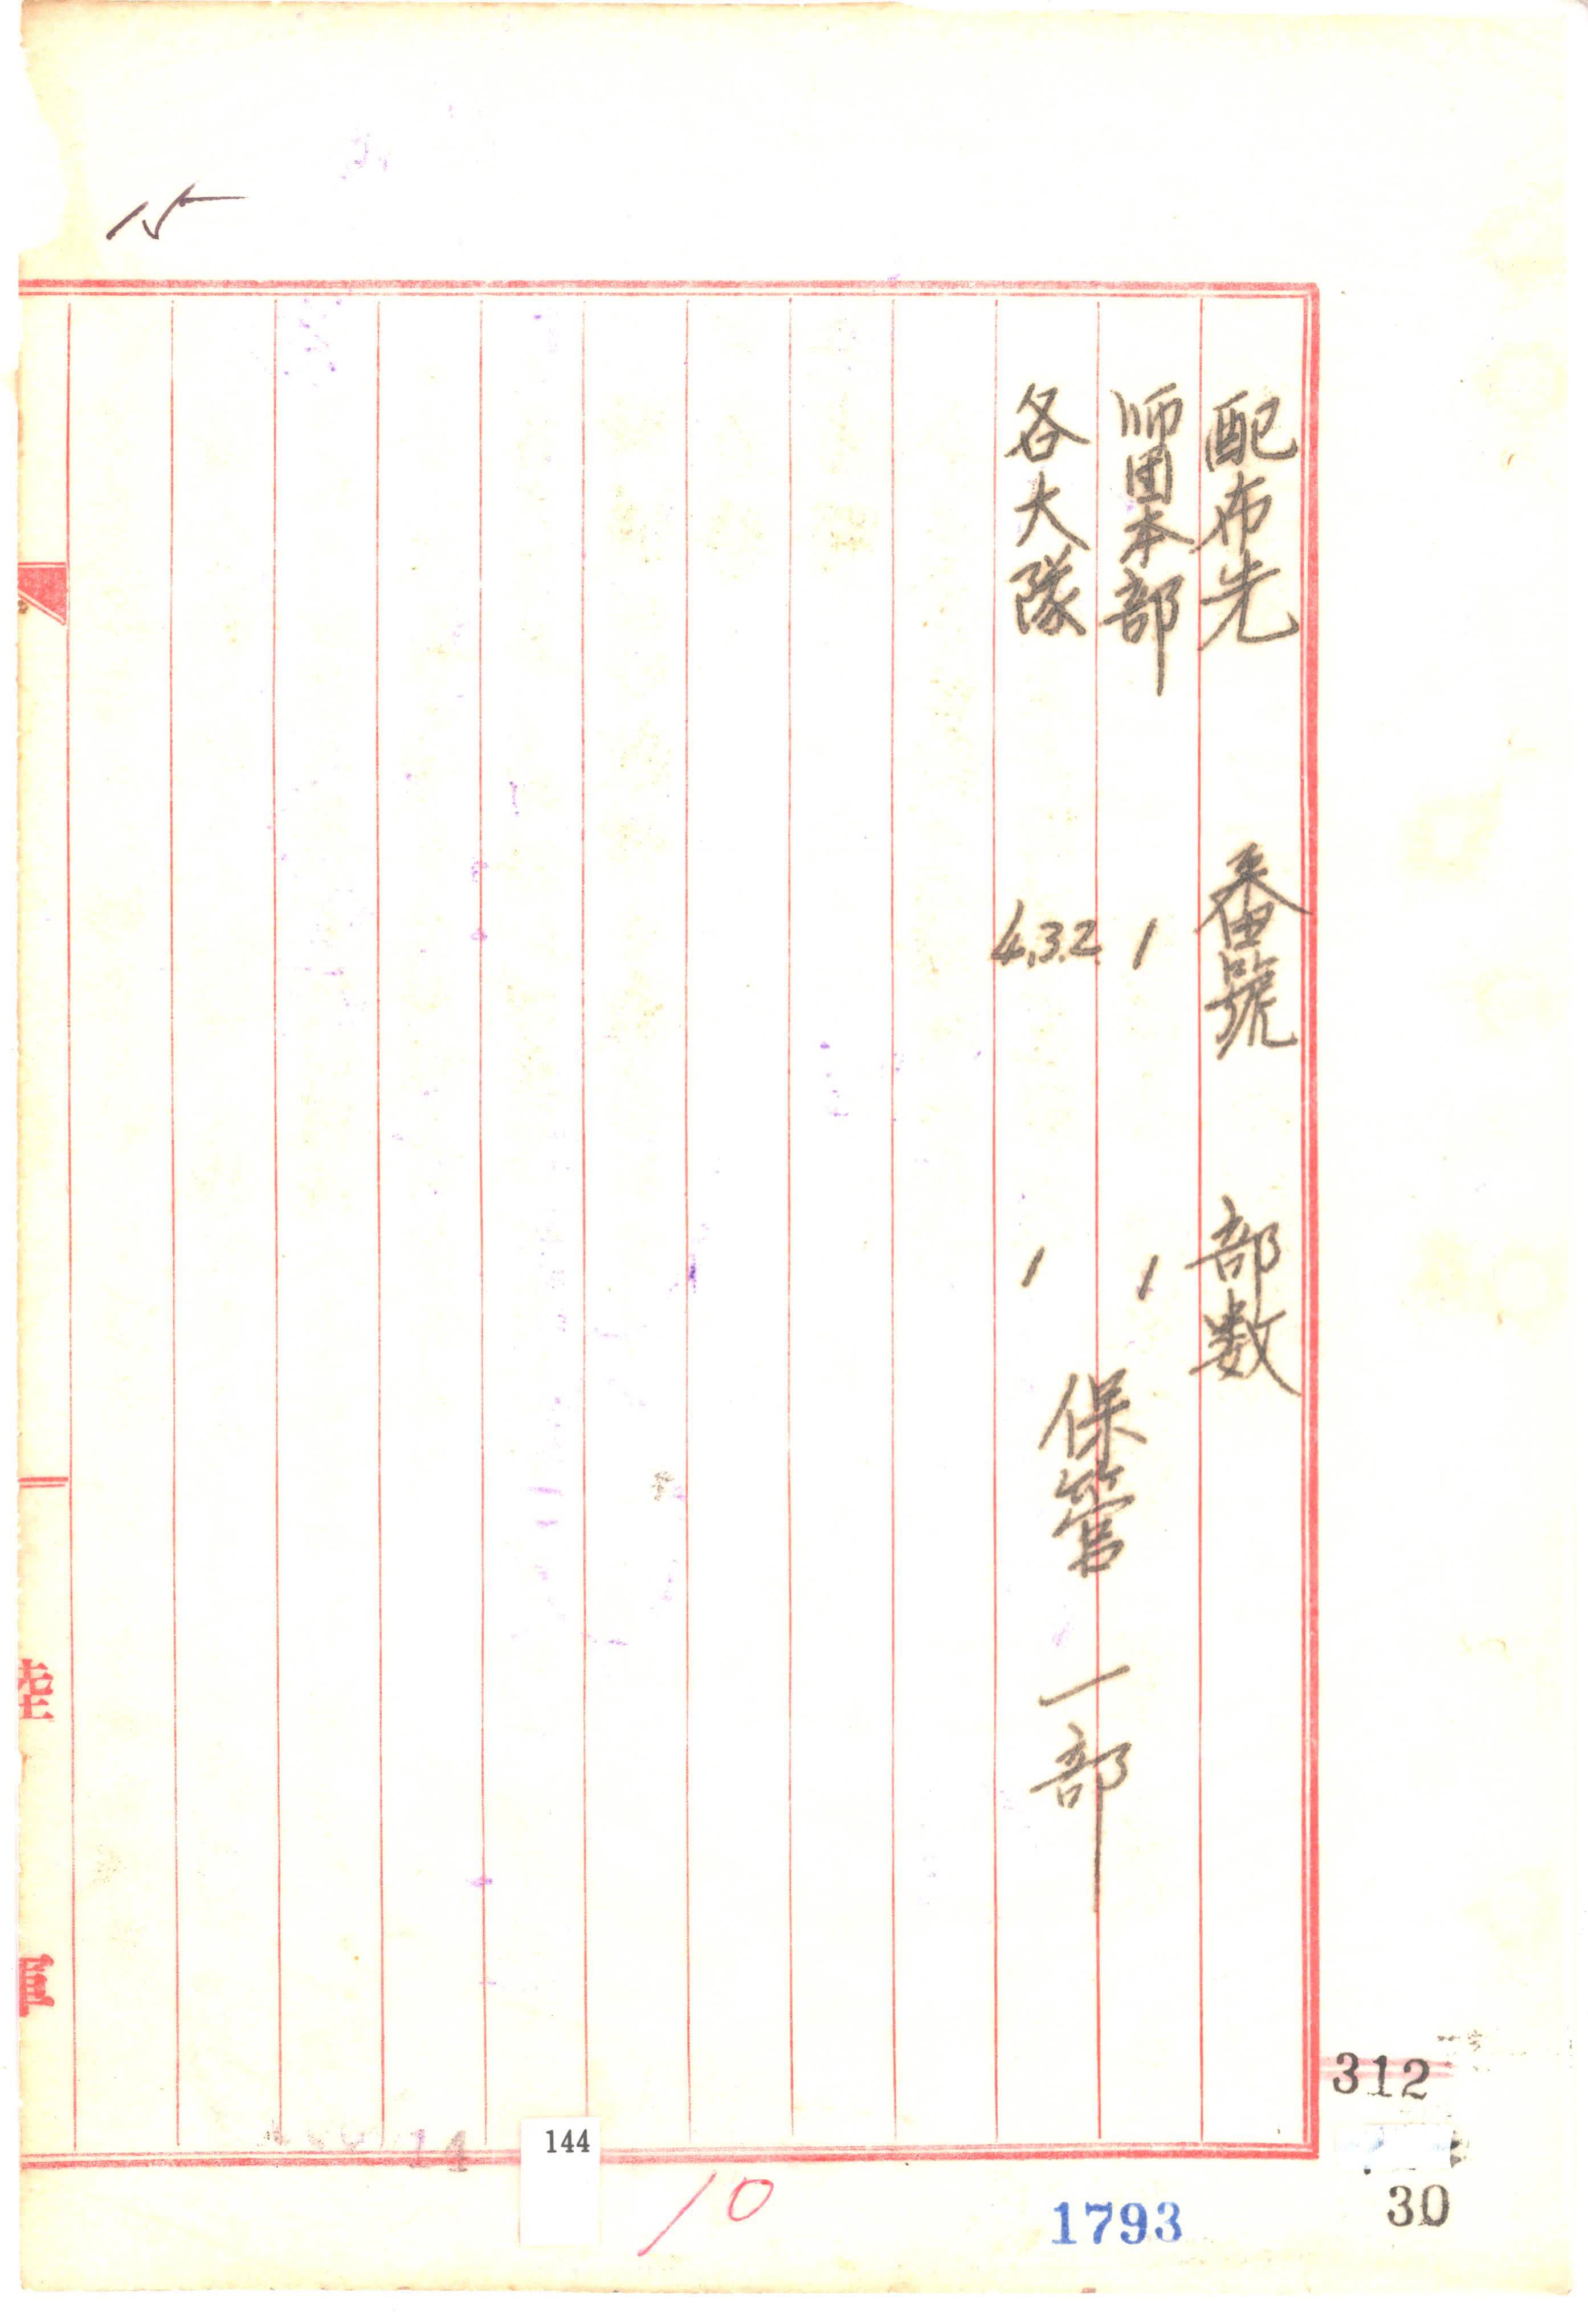 配布先 番號 部数
师団本部 1 1
各大隊 4.3.2. 1
保管 一部
15
陸軍
312
30
1793
144
14
10